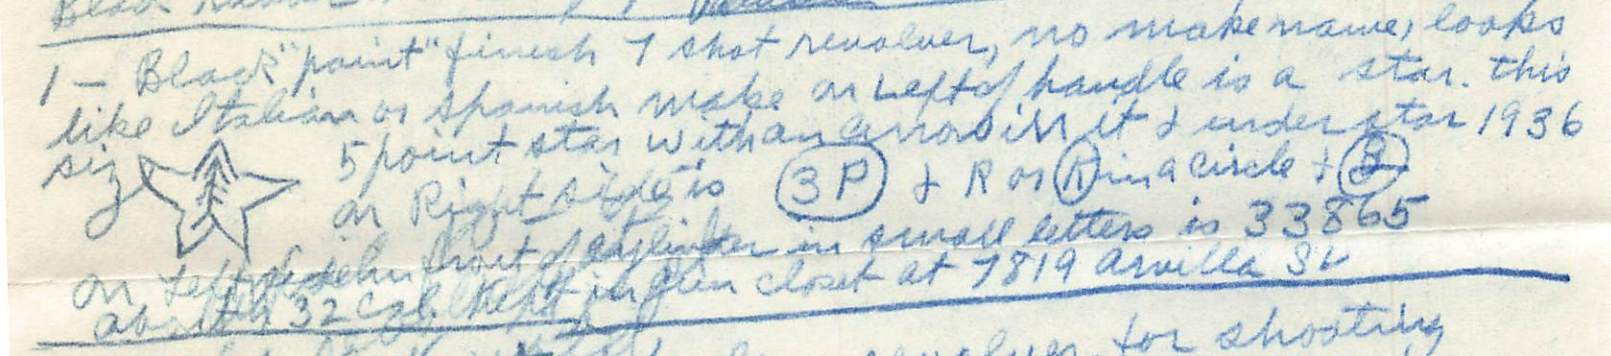 Black
1 - Black "paint" finish 7 shot revolver, no make name, looks
like Italian or Spanish make on Left of handle is a star. this
siz 5 point star with an arrow in it & under star 1936
on Right side is 3P & R or R in a circle & B
on Left side in front of cylinder in small letters is 33865
about 32 cal. kept in gun closet at 7819 Arvilla St
revolver for shooting